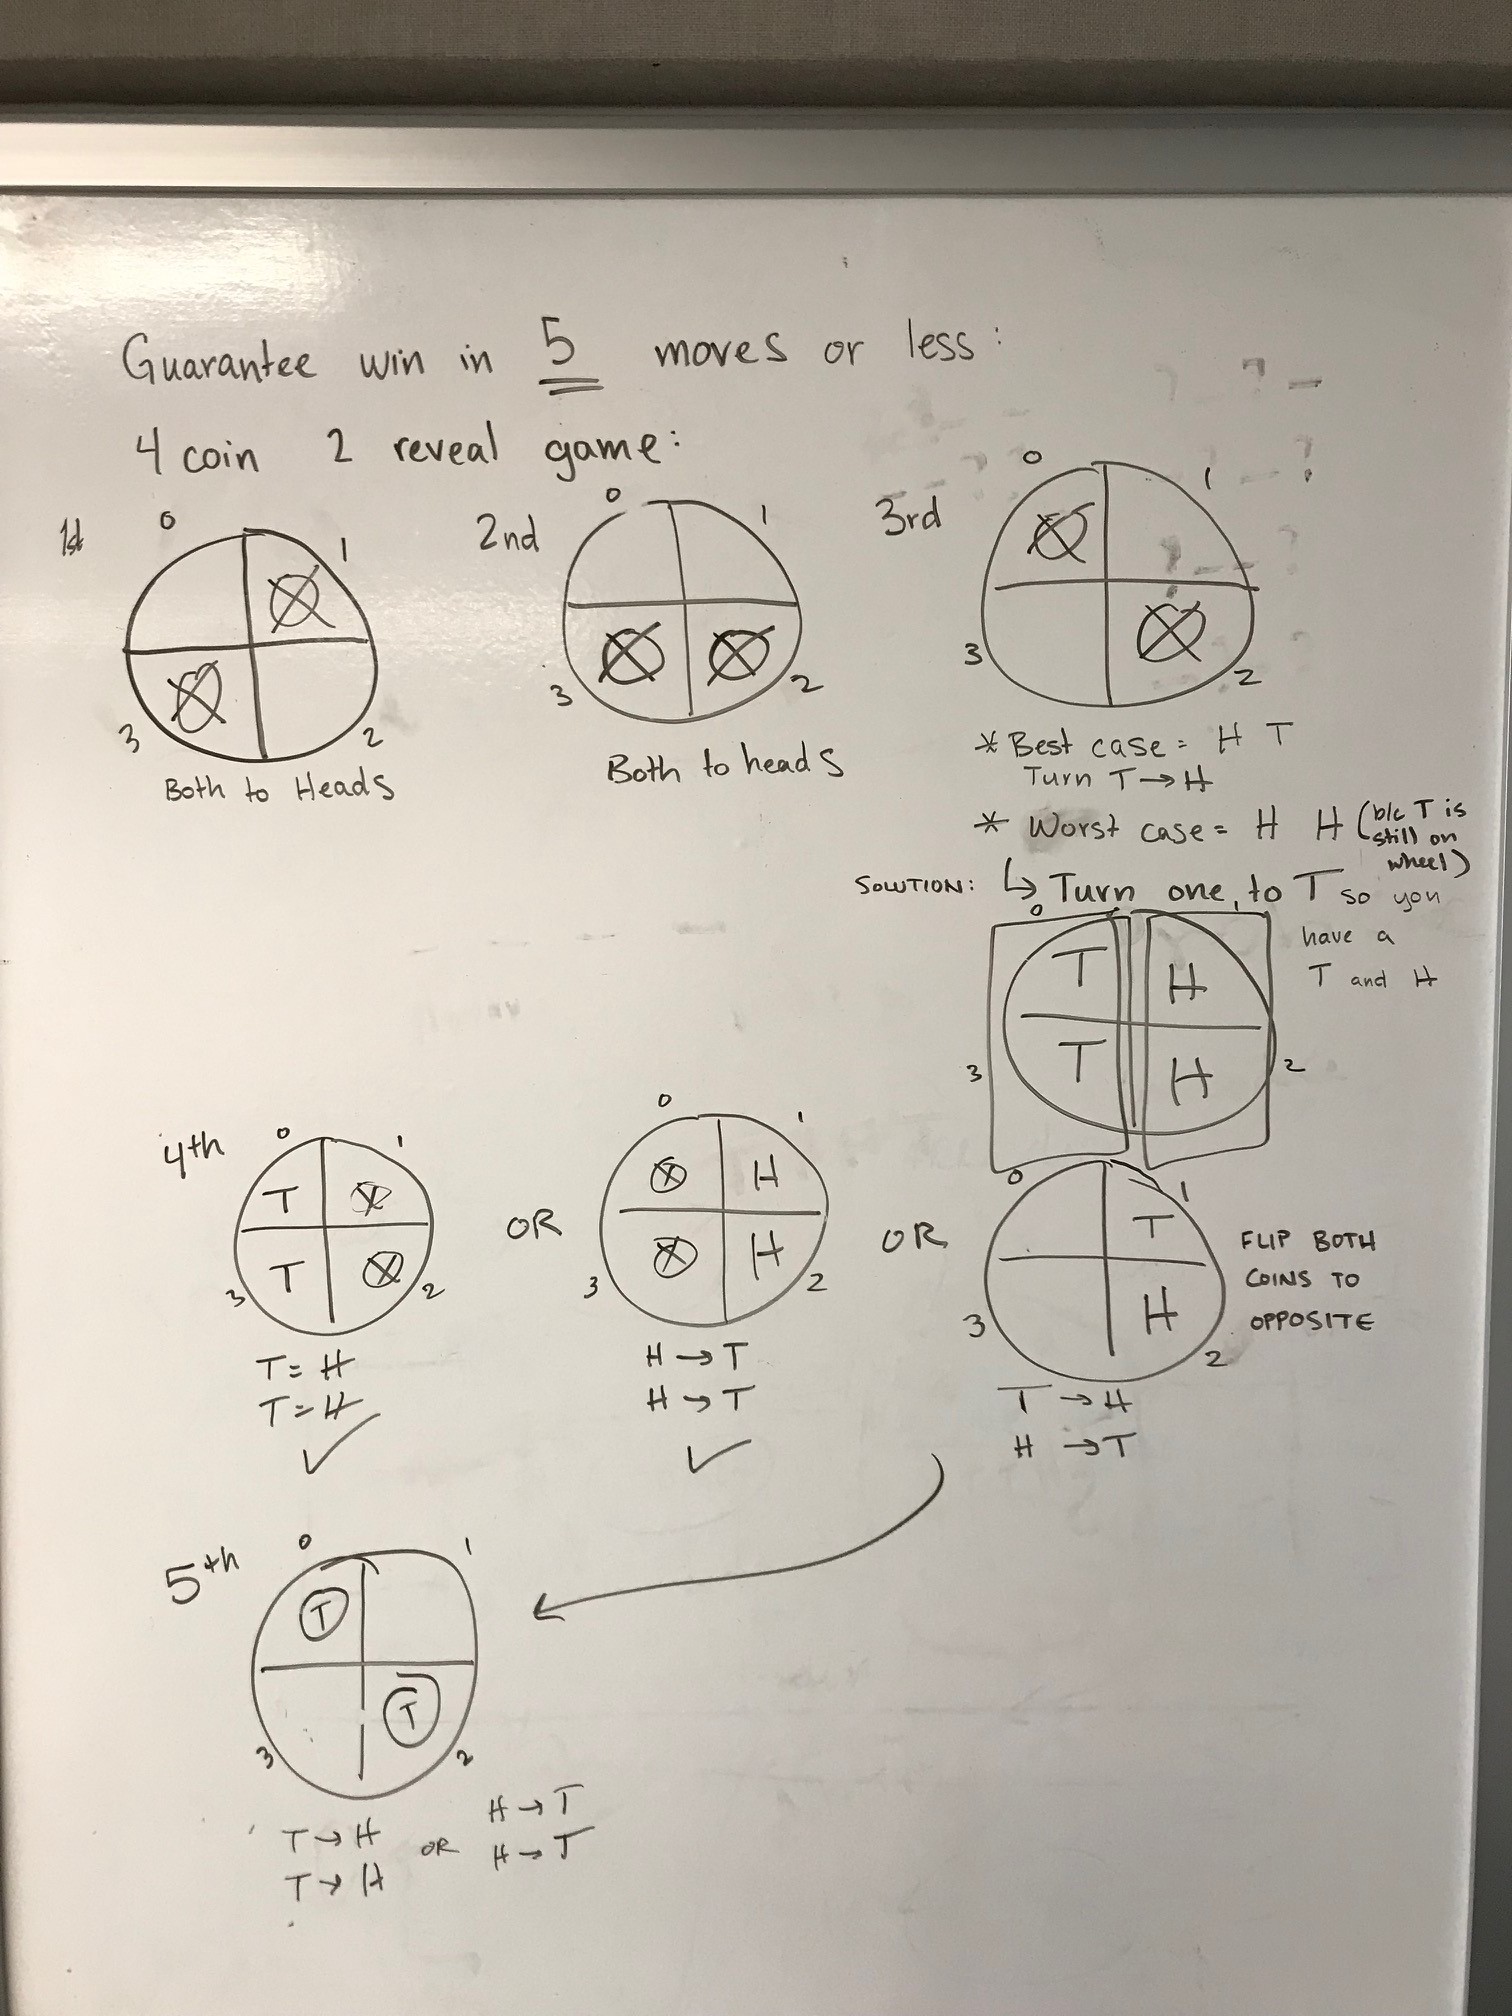 Guarantee win in 5 moves or less:
4 coin 2 reveal game:
1st
0
1
3
2
Both to Heads
2nd
0
1
3
2
Both to heads
3rd
0
1
3
2
* Best case = H T
Turn T → H
* Worst case = H H (b/c T is
still on
wheel)
SOLUTION: ↳ Turn one to T so you
have a
T and H
0
1
T H
T H
3
2
4th
0
1
T
T
3
2
T = H
T = H
✓
OR
0
1
H
H
3
2
H → T
H → T
✓
OR
0
1
T
H
3
2
FLIP BOTH
COINS TO
OPPOSITE
T → H
H → T
5th
0
1
T
T
3
2
T → H
T → H
OR
H → T
H → T